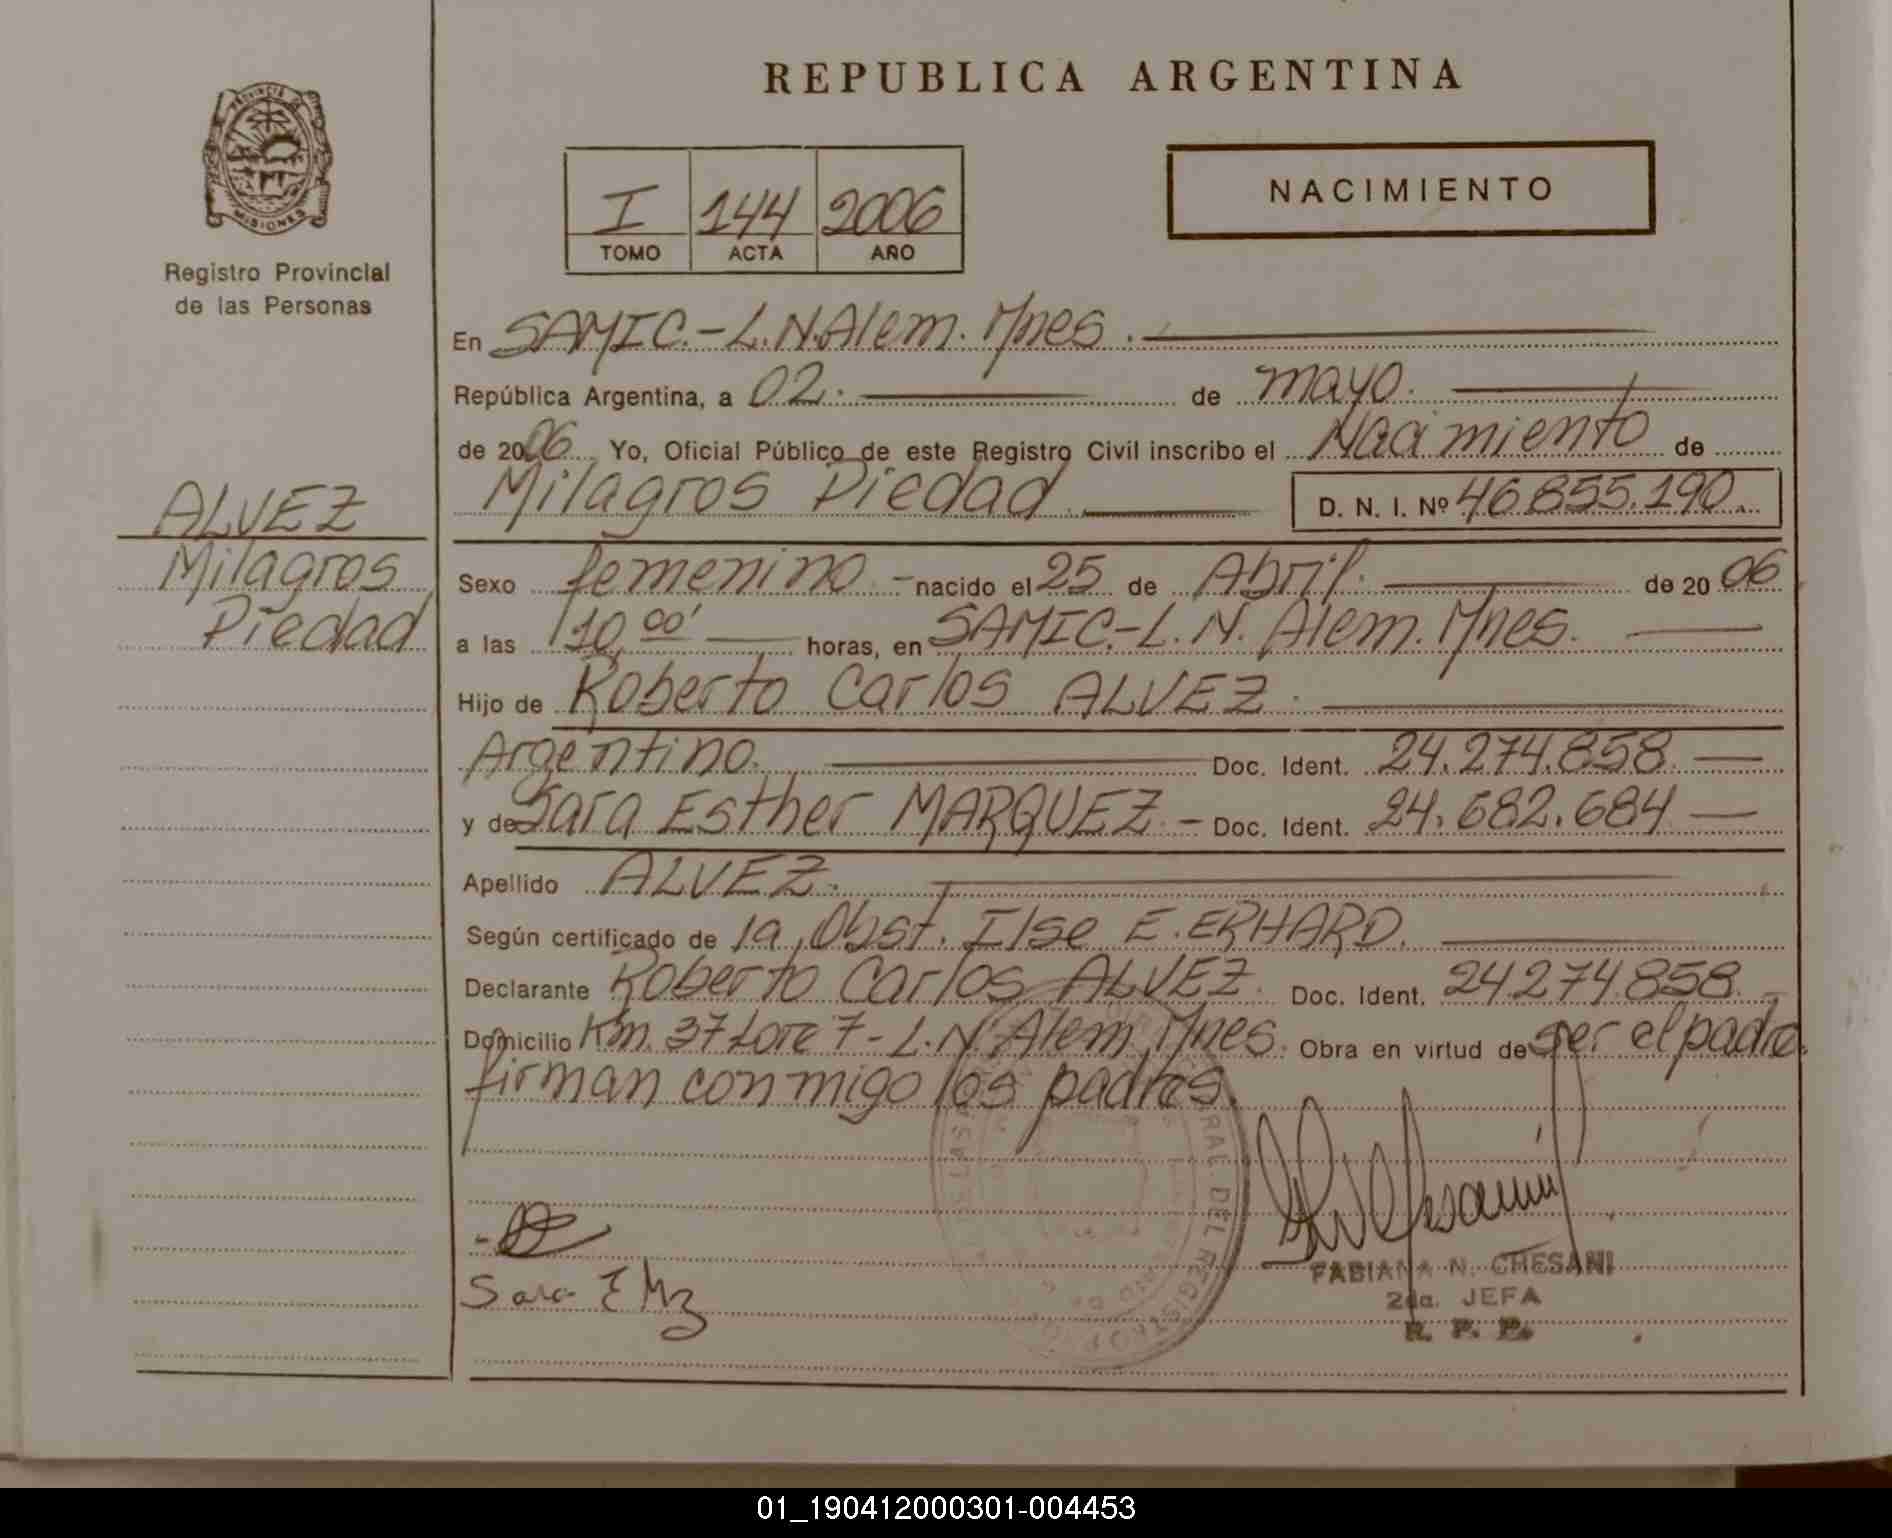 REPUBLICA ARGENTINA
PROVINCIA DE
MISIONES
Registro Provincial
de las Personas
I 144 2006
TOMO ACTA AÑO
NACIMIENTO
En SAMIC.-L.N.Alem. Mnes.
República Argentina, a 02. de mayo.
de 2006 Yo, Oficial Público de este Registro Civil inscribo el Nacimiento de
Milagros Piedad D. N. I. Nº 46.855.190
ALVEZ
Milagros
Piedad
Sexo femenino.- nacido el 25 de Abril. de 2006
a las 10,00' horas, en SAMIC.-L.N. Alem. Mnes.
Hijo de Roberto Carlos ALVEZ.
Argentino. Doc. Ident. 24.274.858
y de Sara Esther MARQUEZ.- Doc. Ident. 24.682.684
Apellido ALVEZ.
Según certificado de la Obst. Ilse E. ERHARD.
Declarante Roberto Carlos ALVEZ. Doc. Ident. 24274.858
Domicilio Km. 37 Lote 7-L.N. Alem, Mnes. Obra en virtud de ser el padre.
firman conmigo los padres.
RAL DEL REGISTRO
Sara E Mz
FABIANA N. CHESANI
2da. JEFA
R. P. P.
01_190412000301-004453